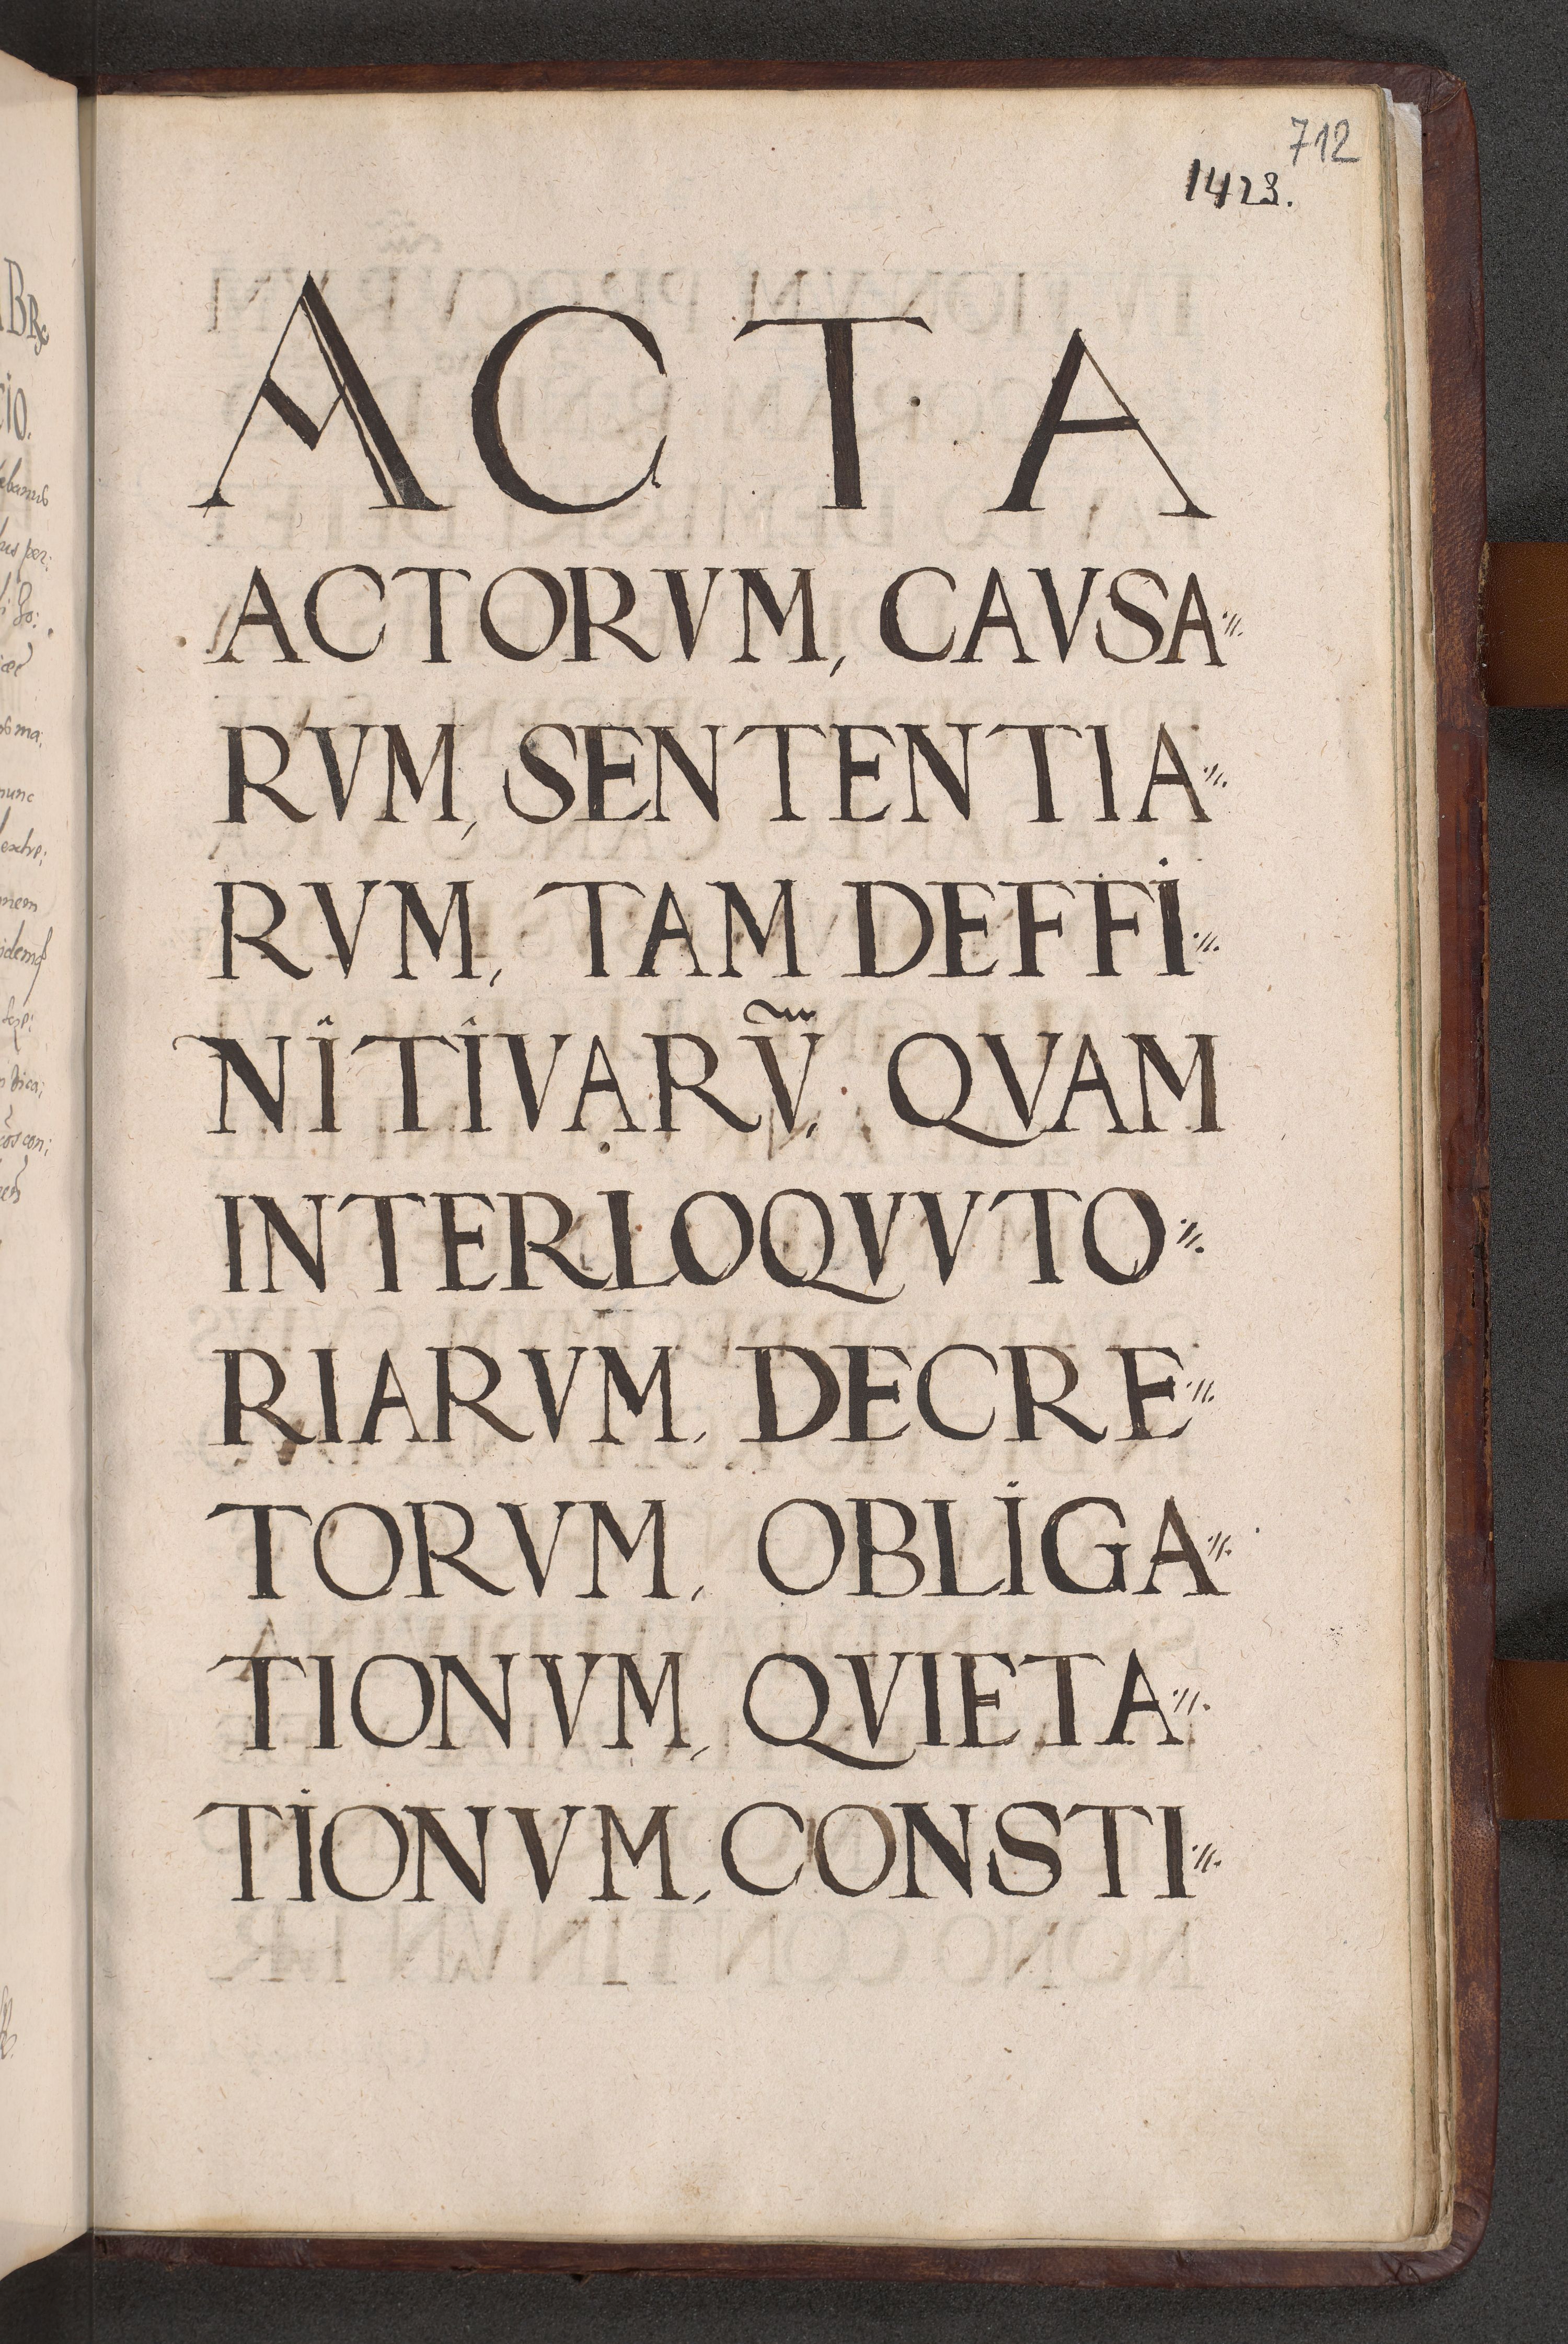 712
1423.
ACTA
ACTORVM, CAVSA⸗
RVM, SENTENTIA⸗
RVM, TAM DEFFI⸗
NITIVARṼ, QVAM
INTERLOQVVTO⸗
RIARVM, DECRE⸗
TORVM, OBLIGA⸗
TIONVM, QVIETA⸗
TIONVM, CONSTI⸗